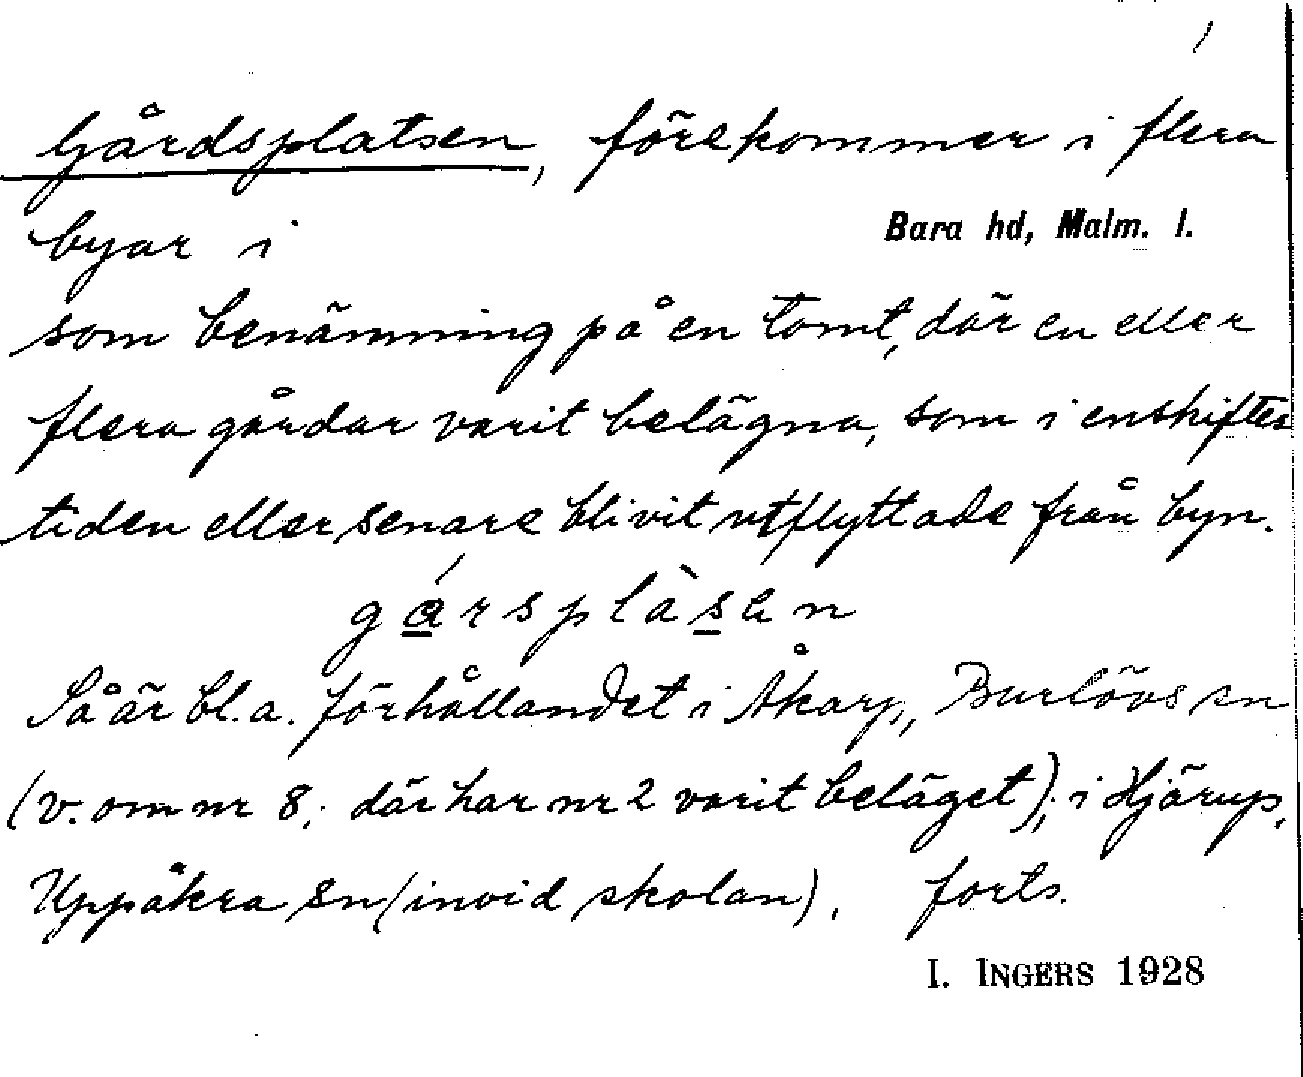 Gårdsplatsen, förekommer i flera
byar i Bara hd, Malm. l.
som benämning på en tomt, där en eller
flera gårdar varit belägna, som i enskiftes
tiden eller senare blivit utflyttade från byn.
gársplàsen
Så är bl.a. förhållandet i Åkarp, Burlövs sn
(v. om nr 8; där har nr 2 varit beläget); i Hjärup,
Uppåkra sn (invid skolan), forts.
I. INGERS 1928